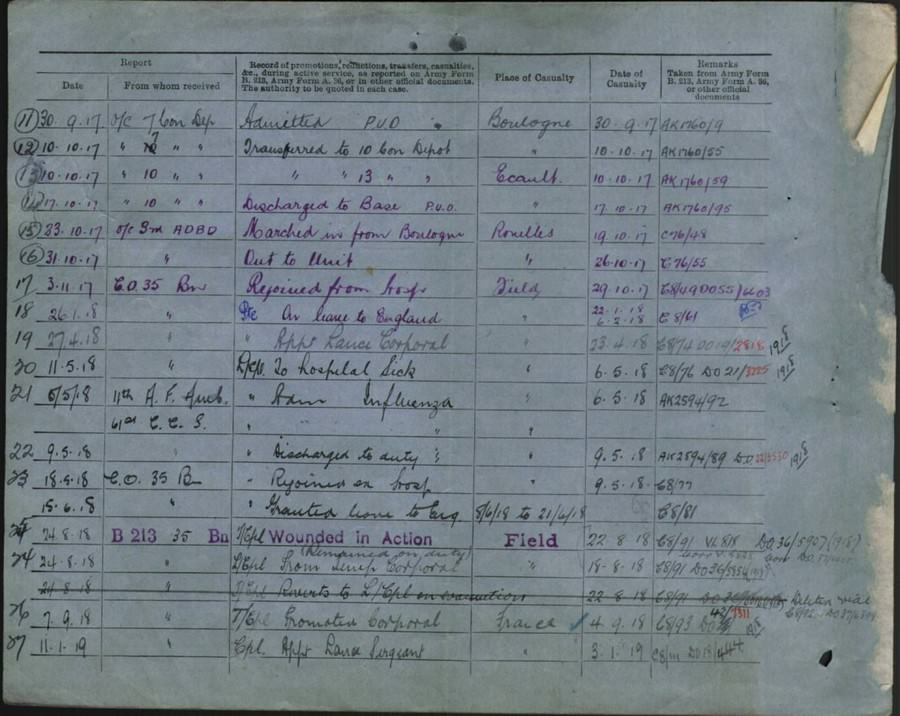 Report
Record of promotions, reductions, transfers, casualties, &c., during active service, as reported on Army Form B. 213, Army Form A. 36, or in other official documents. The authority to be quoted in each case.
Place of Casualty
Date of Casualty
Remarks Taken from Army Form B. 213, Army Form A. 36, or other official documents
Date From whom received
11 30.9.17 o/c 7 Con Dep Admitted P.U.O Boulogne 30.9.17 AK1760/9
12 10.10.17 " " " Transferred to 10 Con Depot " 10.10.17 AK1760/55
13 10.10.17 " 10 " " " " 13 " " Ecault. 10.10.17 AK1760/59
17.10.17 " 10 " " Discharged to Base P.U.O. " 17.10.17 AK1760/95
15 23.10.17 o/c 3rd ADBD Marched in from Boulogne Rouelles 19.10.17 C76/48
16 31.10.17 " Out to Unit " 26.10.17 C76/55
17 3.11.17 C.O. 35 Bn Rejoined from hosp Field 29.10.17
18 26.1.18 " Pte On leave to England " 22.1.18 6.2.18 C8/61
19 27.4.18 " " Appt Lance Corporal " 23.4.18 C8/74 DO19/2818 1918
20 11.5.18 " L/Cpl. To hospital Sick " 6.5.18 C8/76 DO21/ 1918
21 6/5/18 11th A. F. Amb. " Adm Influenza " 6.5.18 AK2594/92
61st C. C. S. " " "
22 9.5.18 " Discharged to duty " " 9.5.18 AK2594/89 D.O. 1918
23 18.5.18 C.O. 35 B " Rejoined ex hosp " 9.5.18 C8/77
15.6.18 " " Granted leave to Eng 8/6/18 to 21/6/18 C8/81
24.8.18 B 213 35 Bn T/Cpl Wounded in Action Field 22.8.18 C8/91 VL818 DO36/5907 (1918)
(Remained on duty)
24 24.8.18 " L/Cpl From Temp Corporal " 18.8.18 C8/91 DO36/
24.8.18 Reverts to L/Cpl on evacuation 22.8.18 C8/91
26 7.9.18 " T/Cpl Promoted Corporal France 4.9.18 C8/93 DO 42/7311 1918
27 11.1.19 " Cpl. Appt Lance Sergeant " 3.1.19 C8/111 DO18/444